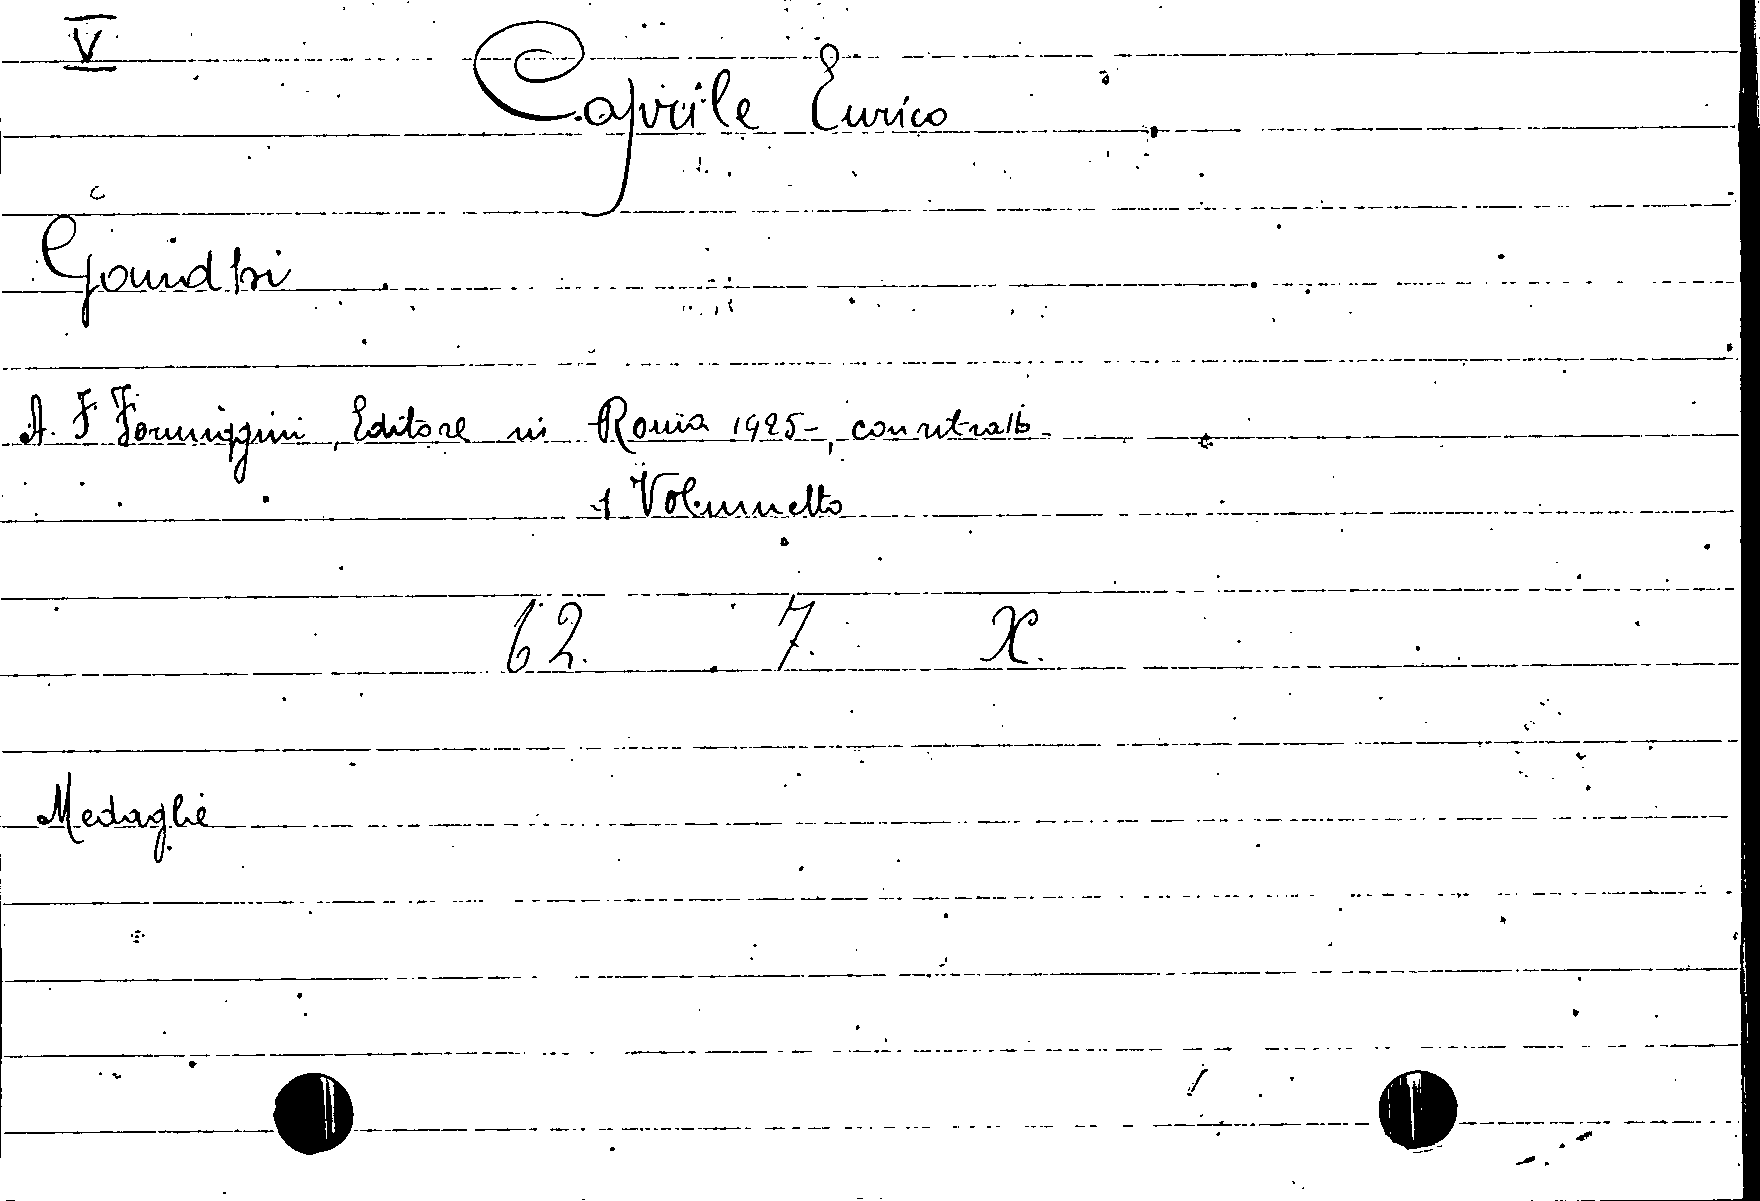 V
Caprile Enrico
Gandhi
A. F. Formiggini, Editore in Roma 1925-, con ritratto
1 Volumetto
62. 7. X.
Medaglie